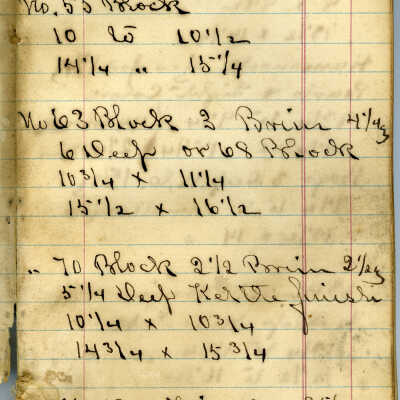 No. 55 Block
10 to 10 1/2
14 1/4 " 15 1/4
No 63 Block 3 Brim 4 1/4
6 Deep or 68 Block
10 3/4 x 11 1/4
15 1/2 x 16 1/2
" 70 Block 2 1/2 Brim 2 1/2
5 1/4 Deep Kettle finish
10 1/4 x 10 3/4
14 3/4 x 15 3/4